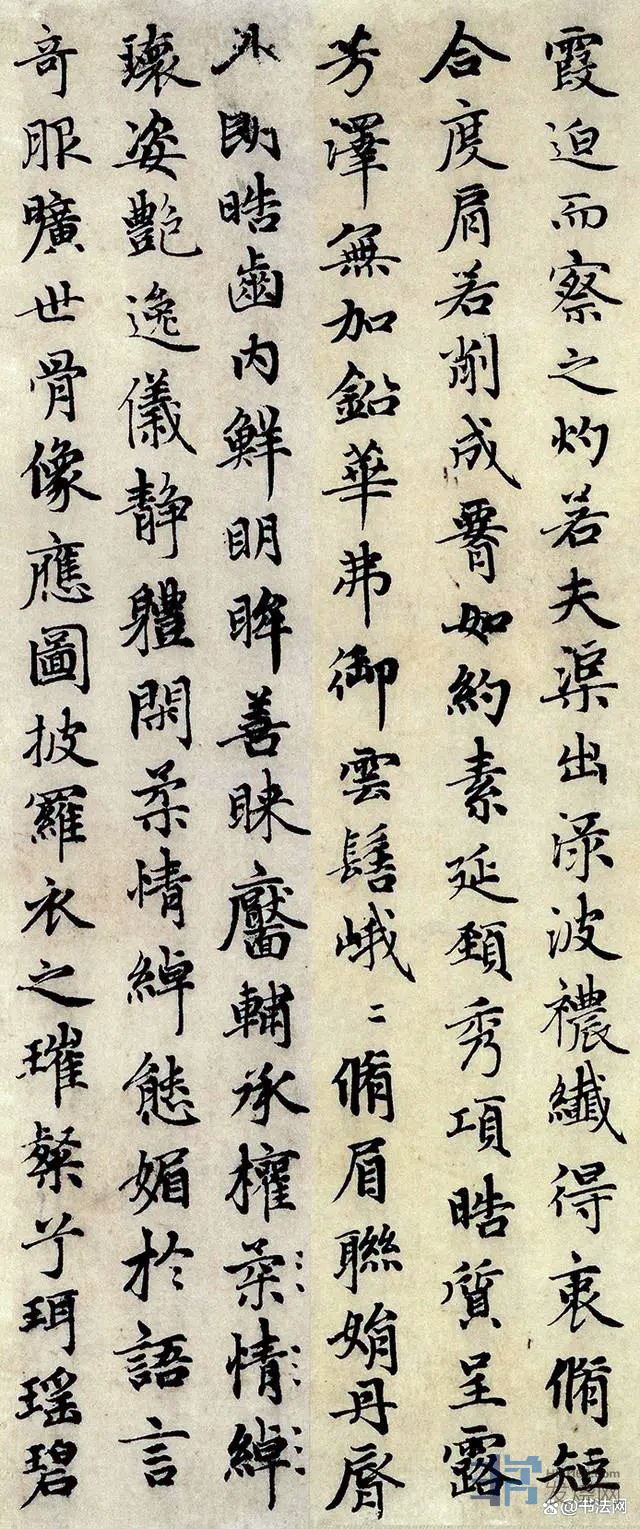 霞迫而察之灼若夫渠出渌波襛纖得衷脩短
合度肩若削成腰如約素延頸秀項晧質呈露
芳澤無加鉛華弗御雲髻峨〻脩眉聯娟丹脣
外朗晧齒内鮮明眸善睞靨輔承權柔情綽
瓌姿艷逸儀静軆閑柔情綽態媚於語言
奇服曠世骨像應圖披羅衣之璀粲兮珥瑶碧
书法网